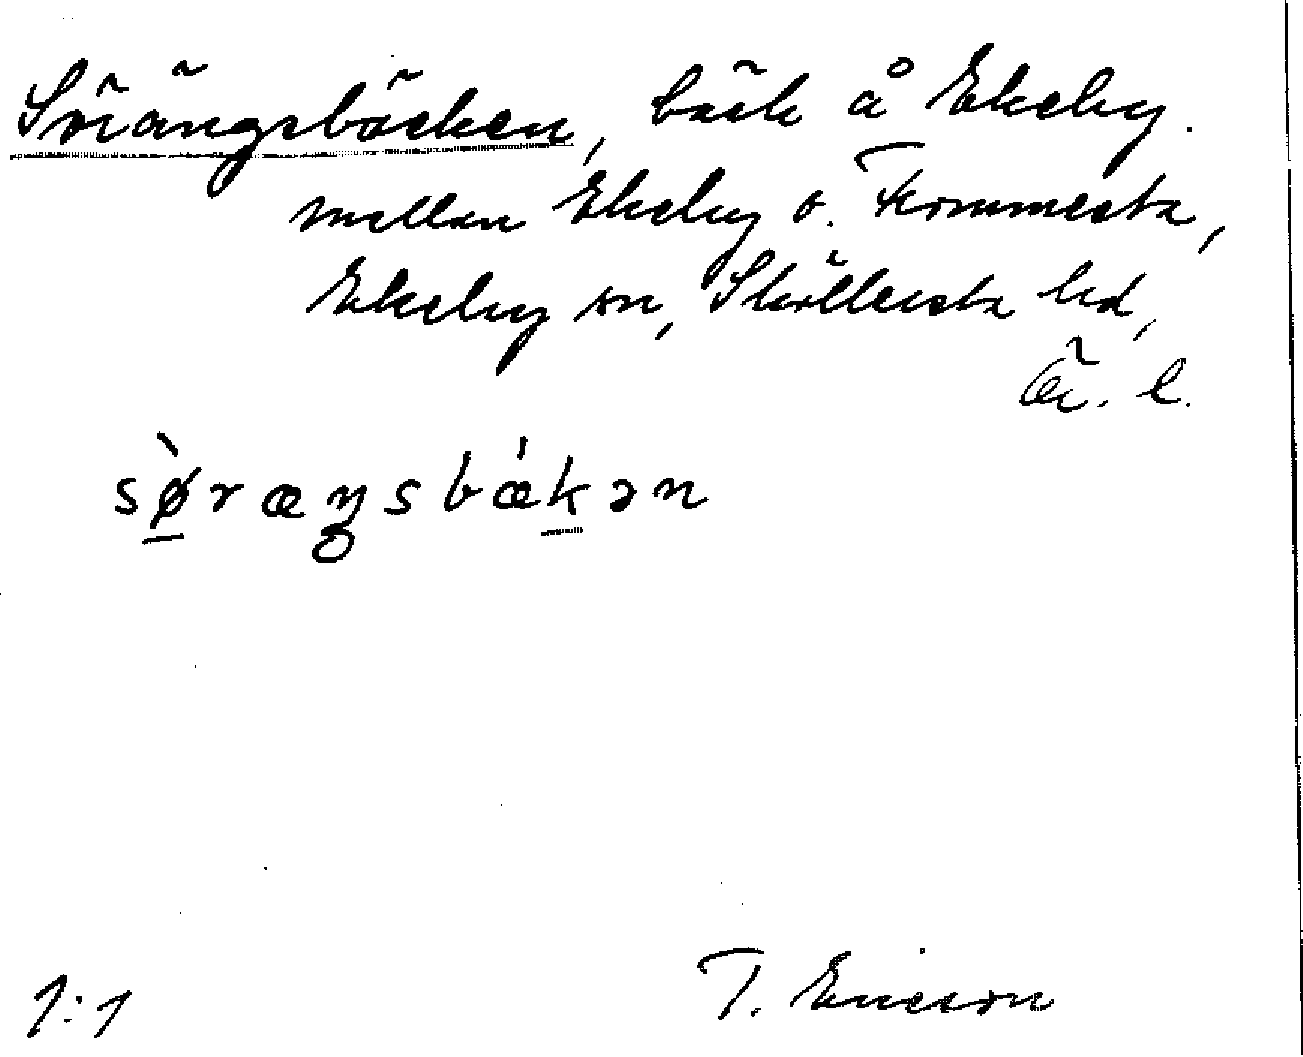 Sörängsbäcken, bäck å Ekeby.
mellan Ekeby o. Frommesta,
Ekeby sn, Sköllersta hd,
Ör. l.
sø̀ræŋsbǽkən
1:1
T. Ericson